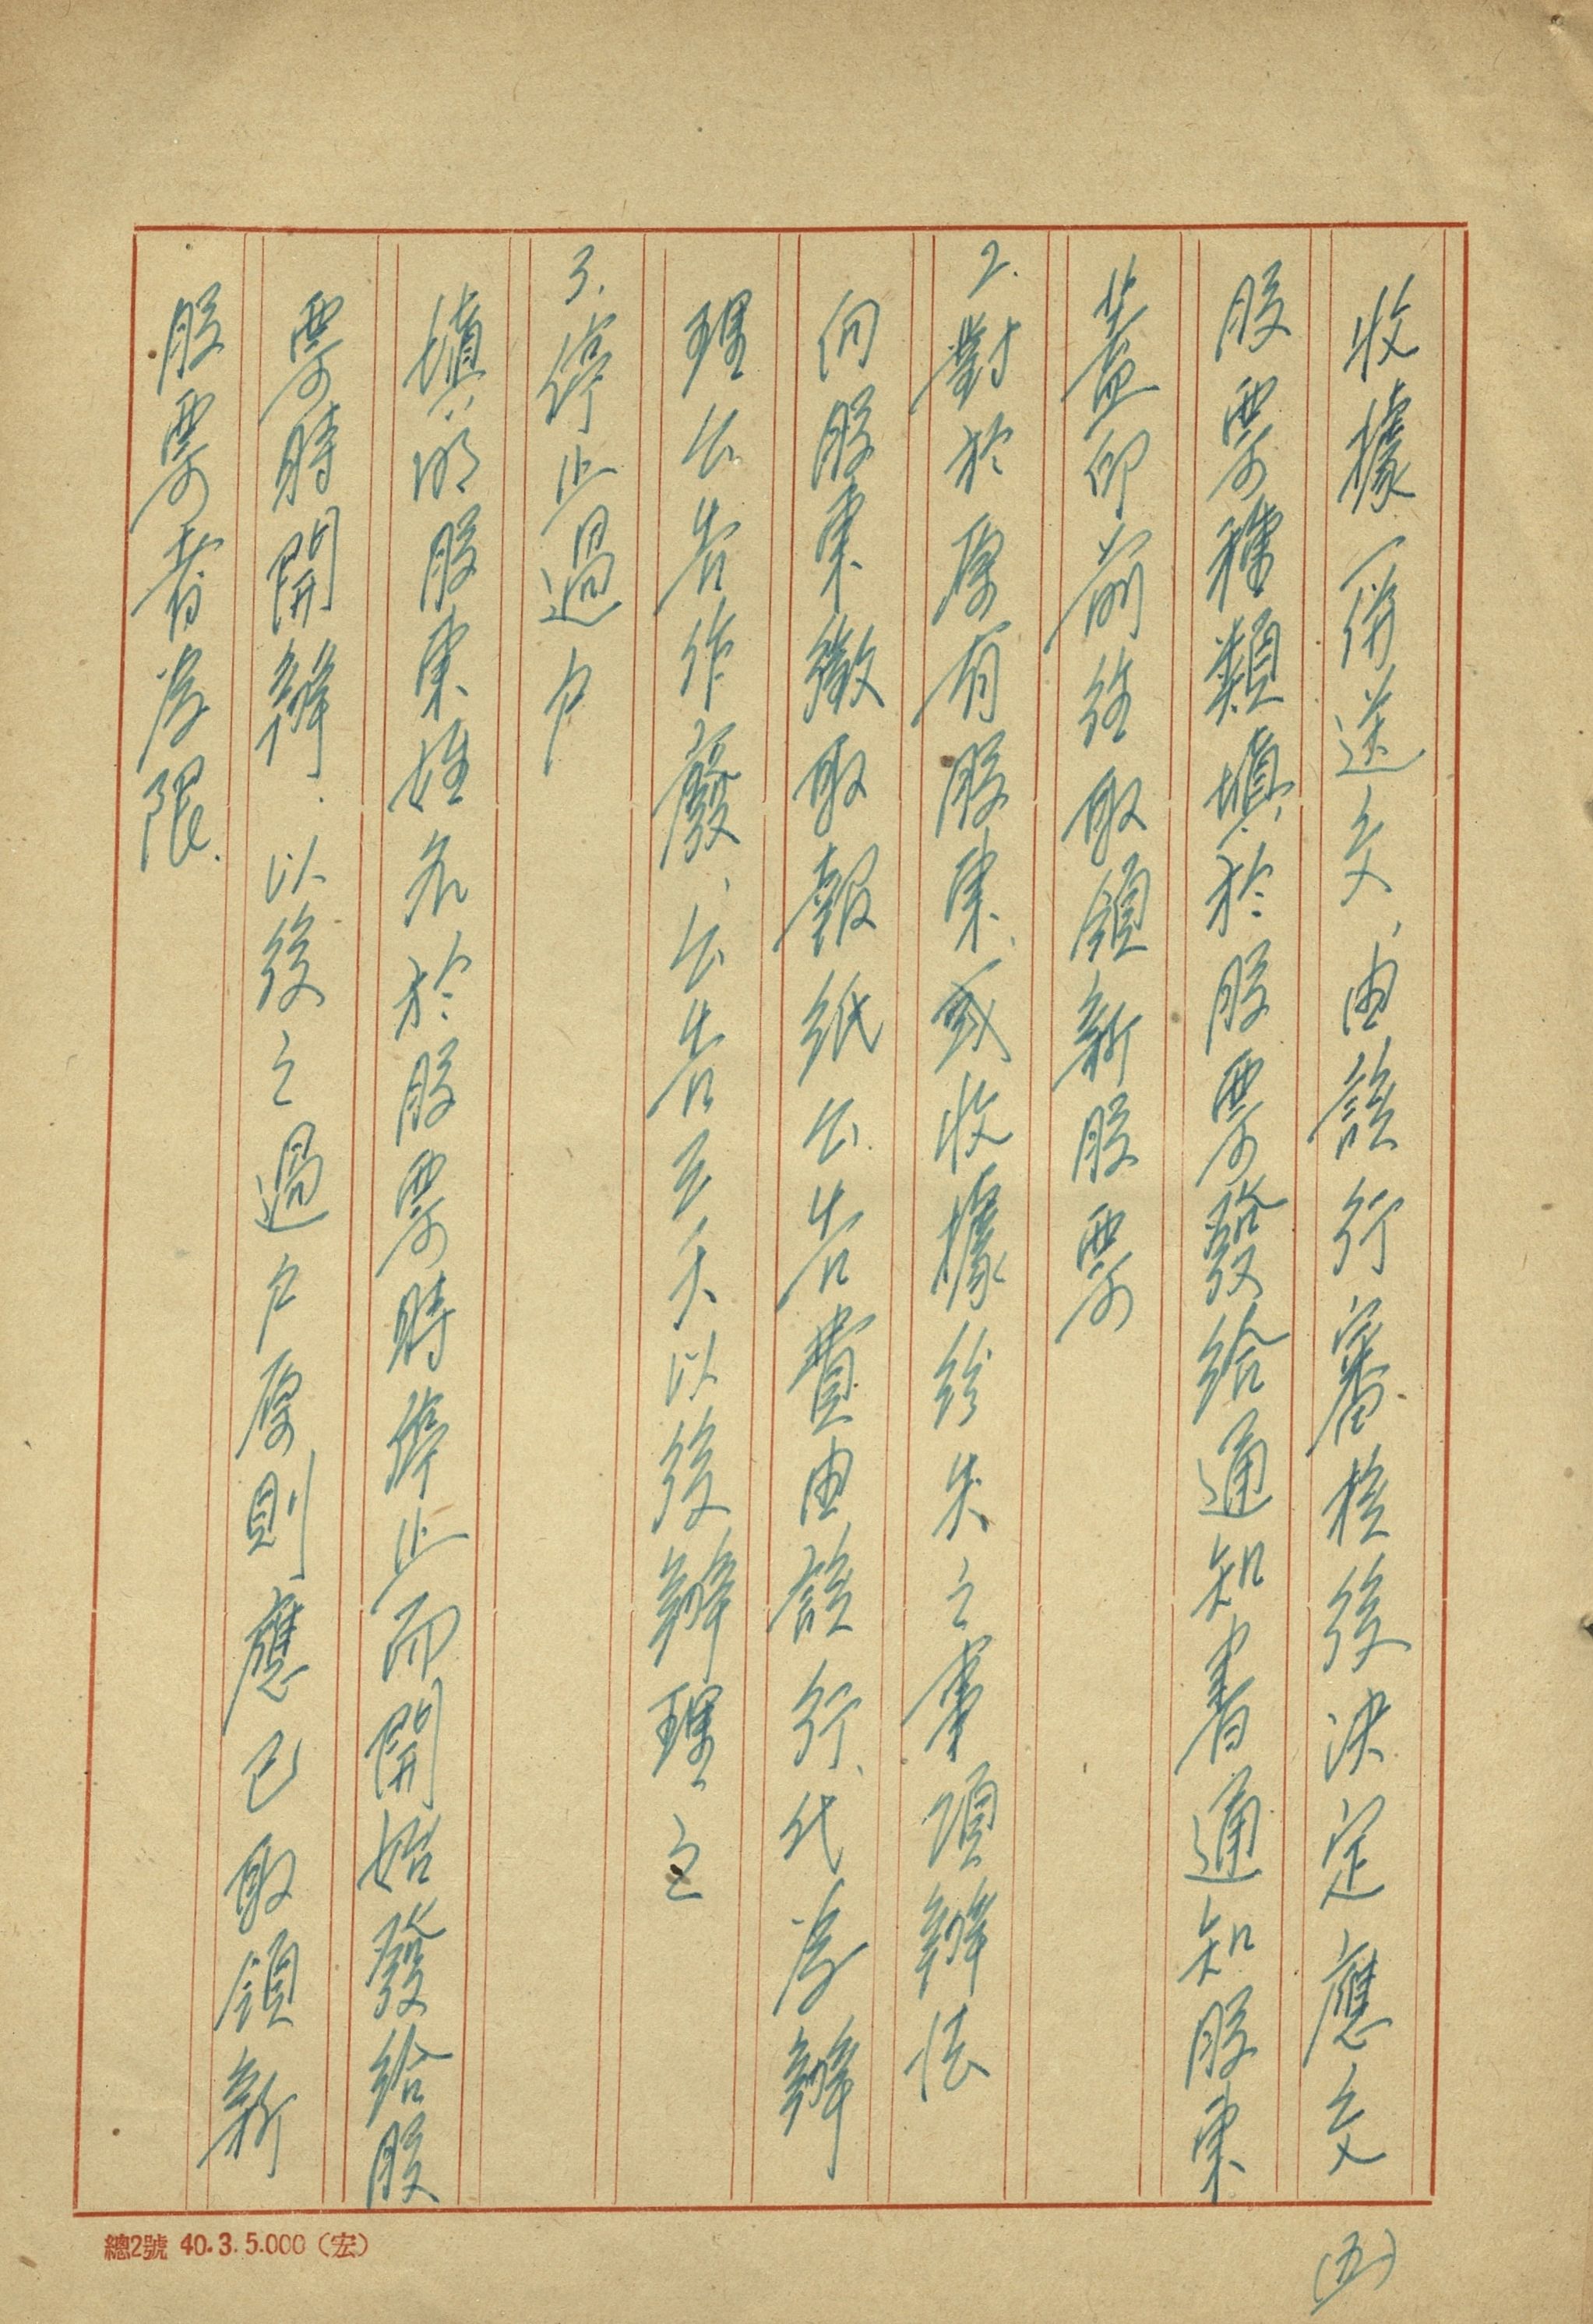 收據一併送交、由該行審核後決定應交
股票種類填於股票發給通知書通知股東
蓋印前往取領新股票
2.對於原有股東、或收據紛失之事項辦法
向股東徵取報紙公告費由該行、代為辦
理公告作廢、公告五天以後辦理之
3.停止過户
填明股東姓名於股票時停止而開始發給股
票時開辦.以後之過户原則應已取領新
股票者為限.
(五)
總2號 40.3.5.000(宏)